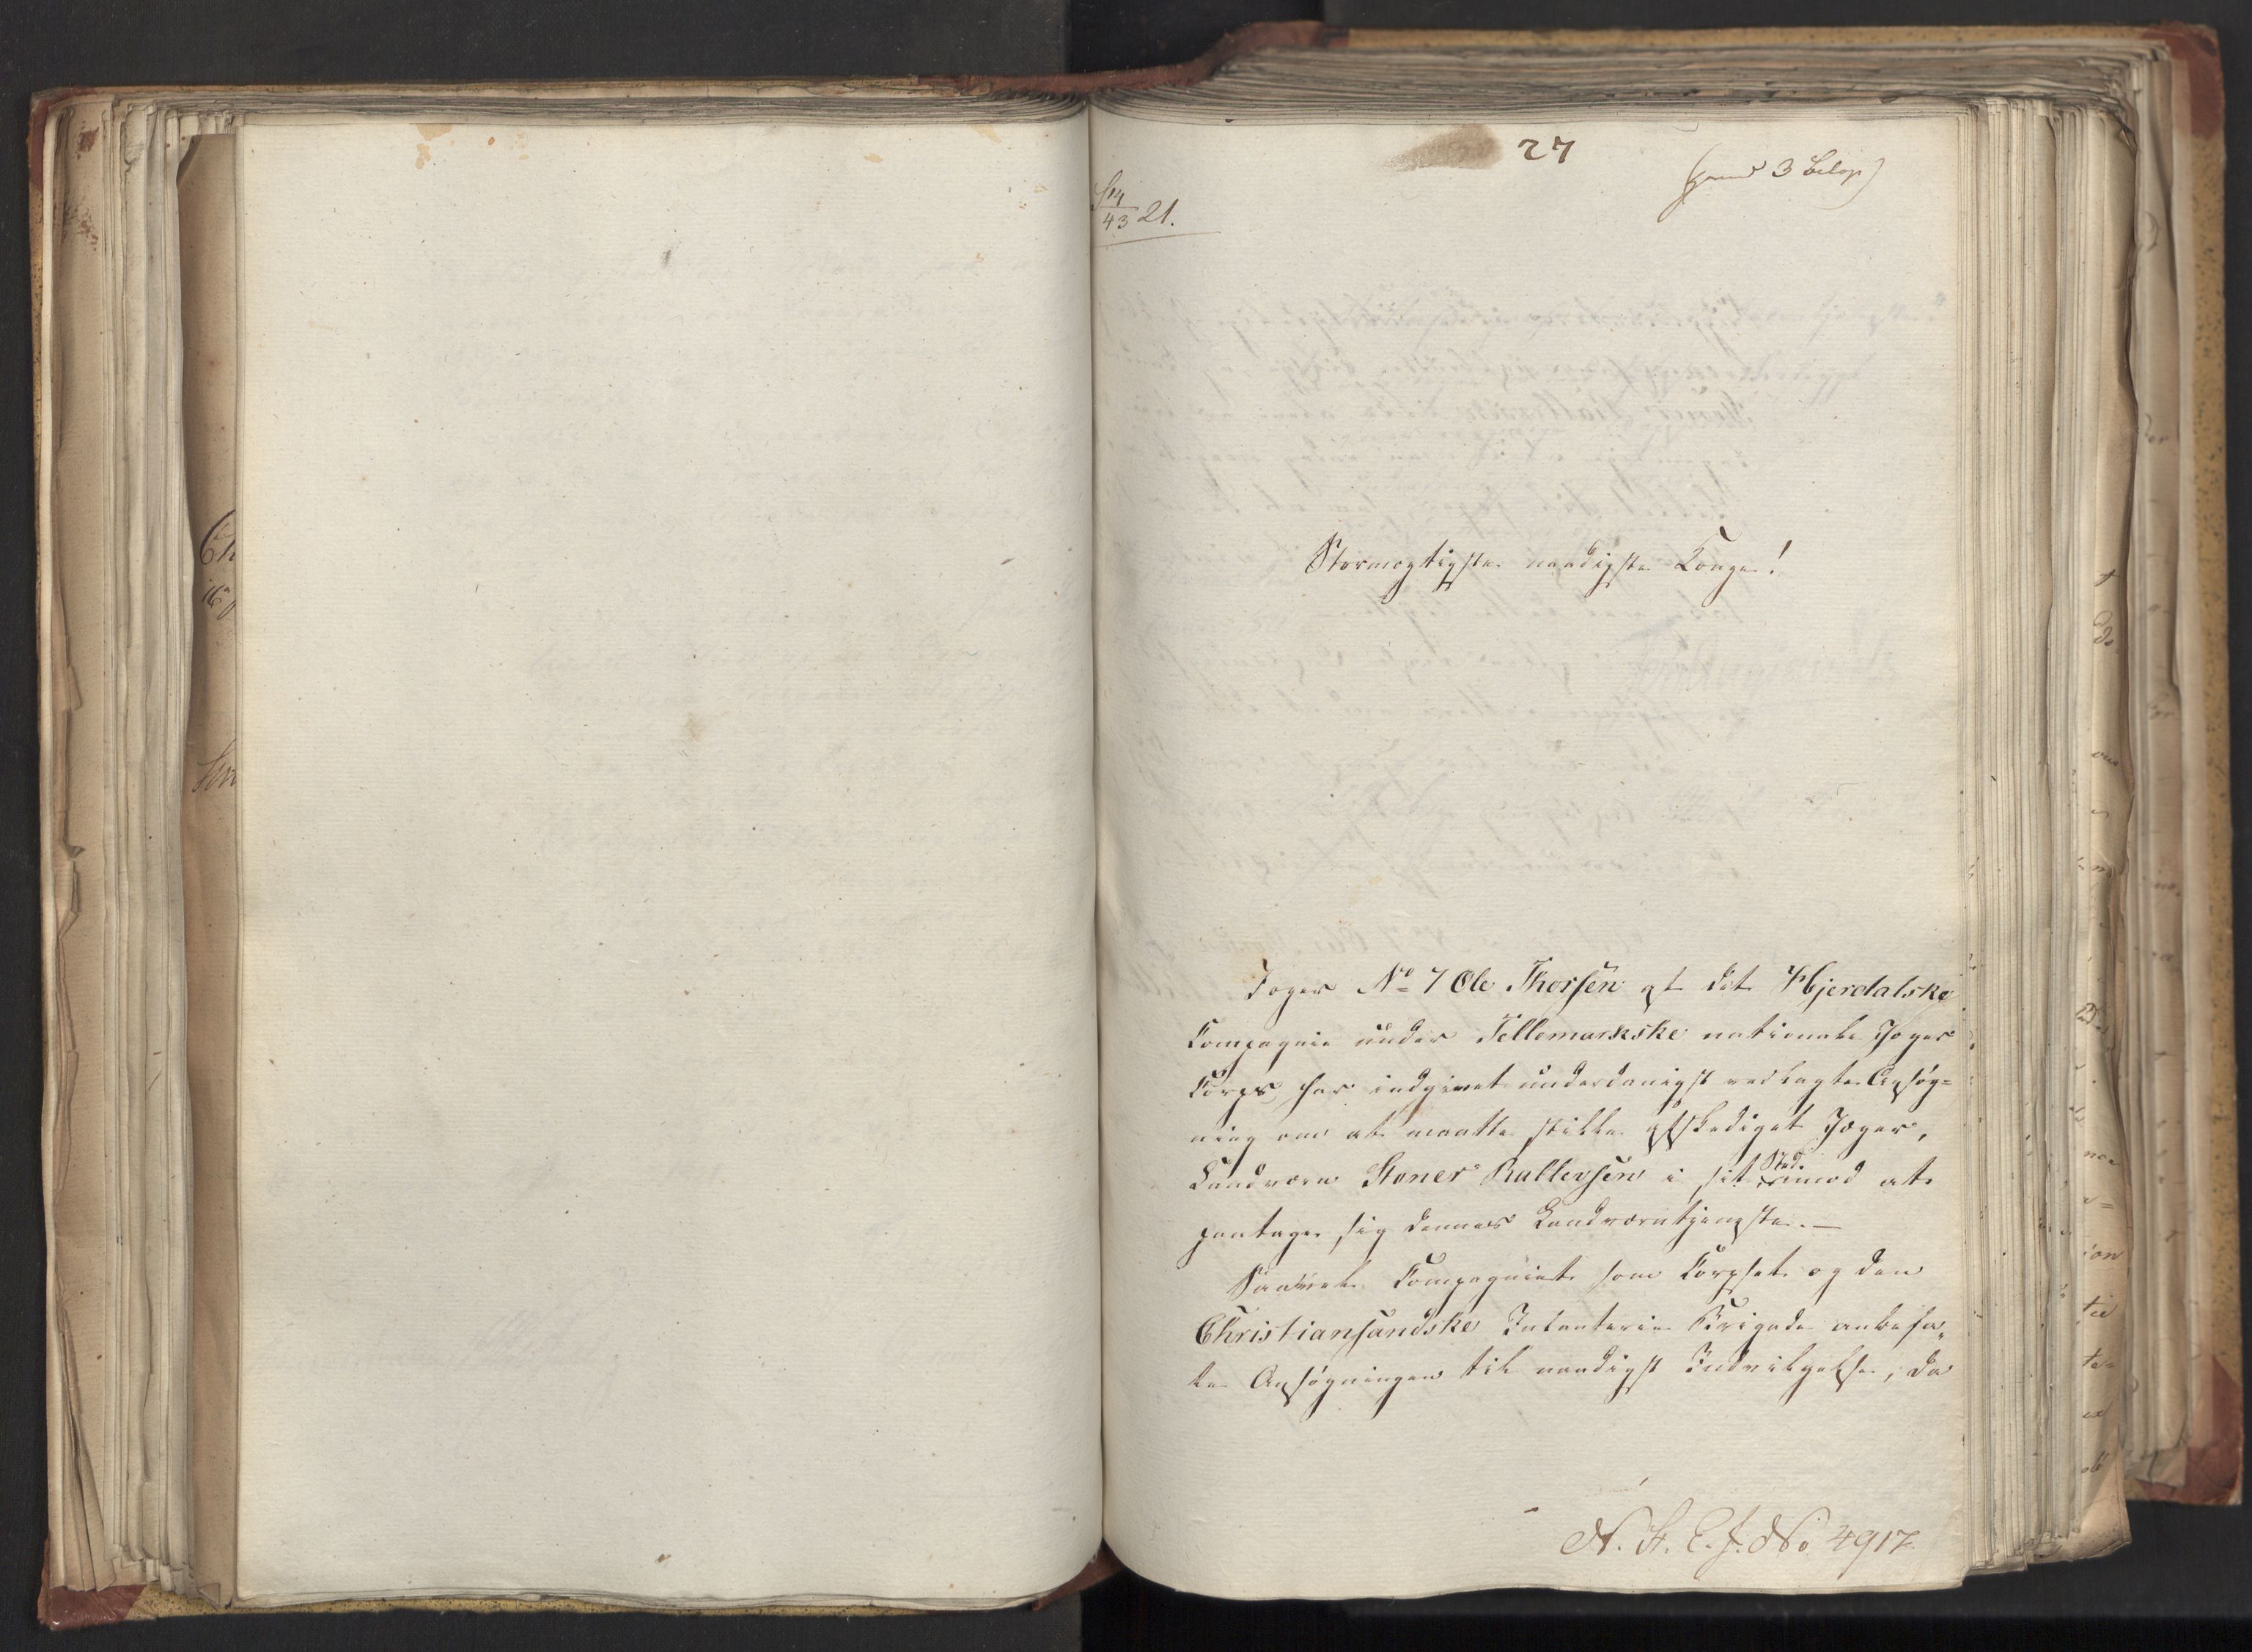 27
43 21.
Stormægtigste naadigste Konge!
Jæger No 7 Ole Thorsen af det Hjerdalske
Compagnie under Tellemarkske nationale Jæger
Corps har indgivet underdanigst vedlagte Ansøg=
ning om at maatte stille afskediget Jæger,
Landværn Stoner Rullevsen i sit Sted. imod at
paatage sig dennes Landværntjeneste. —
Saavel Compagniet som Corpset og den
Christiansandske Infanterie Brigade anbefa„
le Ansøgningen til naadigst Indvilgelse, da
No 4917
Ch